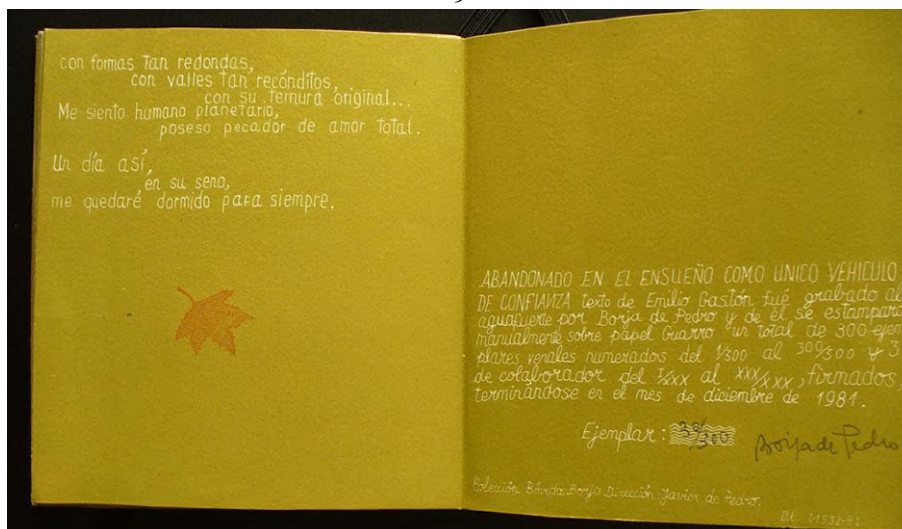 con formas tan redondas,
con valles tan recónditos,
con su ternura original...
Me siento humano planetario,
poseso pecador de amor total.
Un día así,
en su seno,
me quedaré dormido para siempre.
ABANDONADO EN EL ENSUEÑO COMO UNICO VEHICULO
DE CONFIANZA texto de Emilio Gastón fué grabado al
aguafuerte por Borja de Pedro y de él se estamparo
manualmente sobre papel Guarro un total de 300 ejem
plares venales numerados del 1/300 al 300/300 y 3
de colaborador del I/XXX al XXX/XXX, firmados,
terminándose en el mes de diciembre de 1981.
Ejemplar: /300
Borja de Pedro
Colección Bóveda Borja Dirección: Javier de Pedro.
D.L. 31532-81